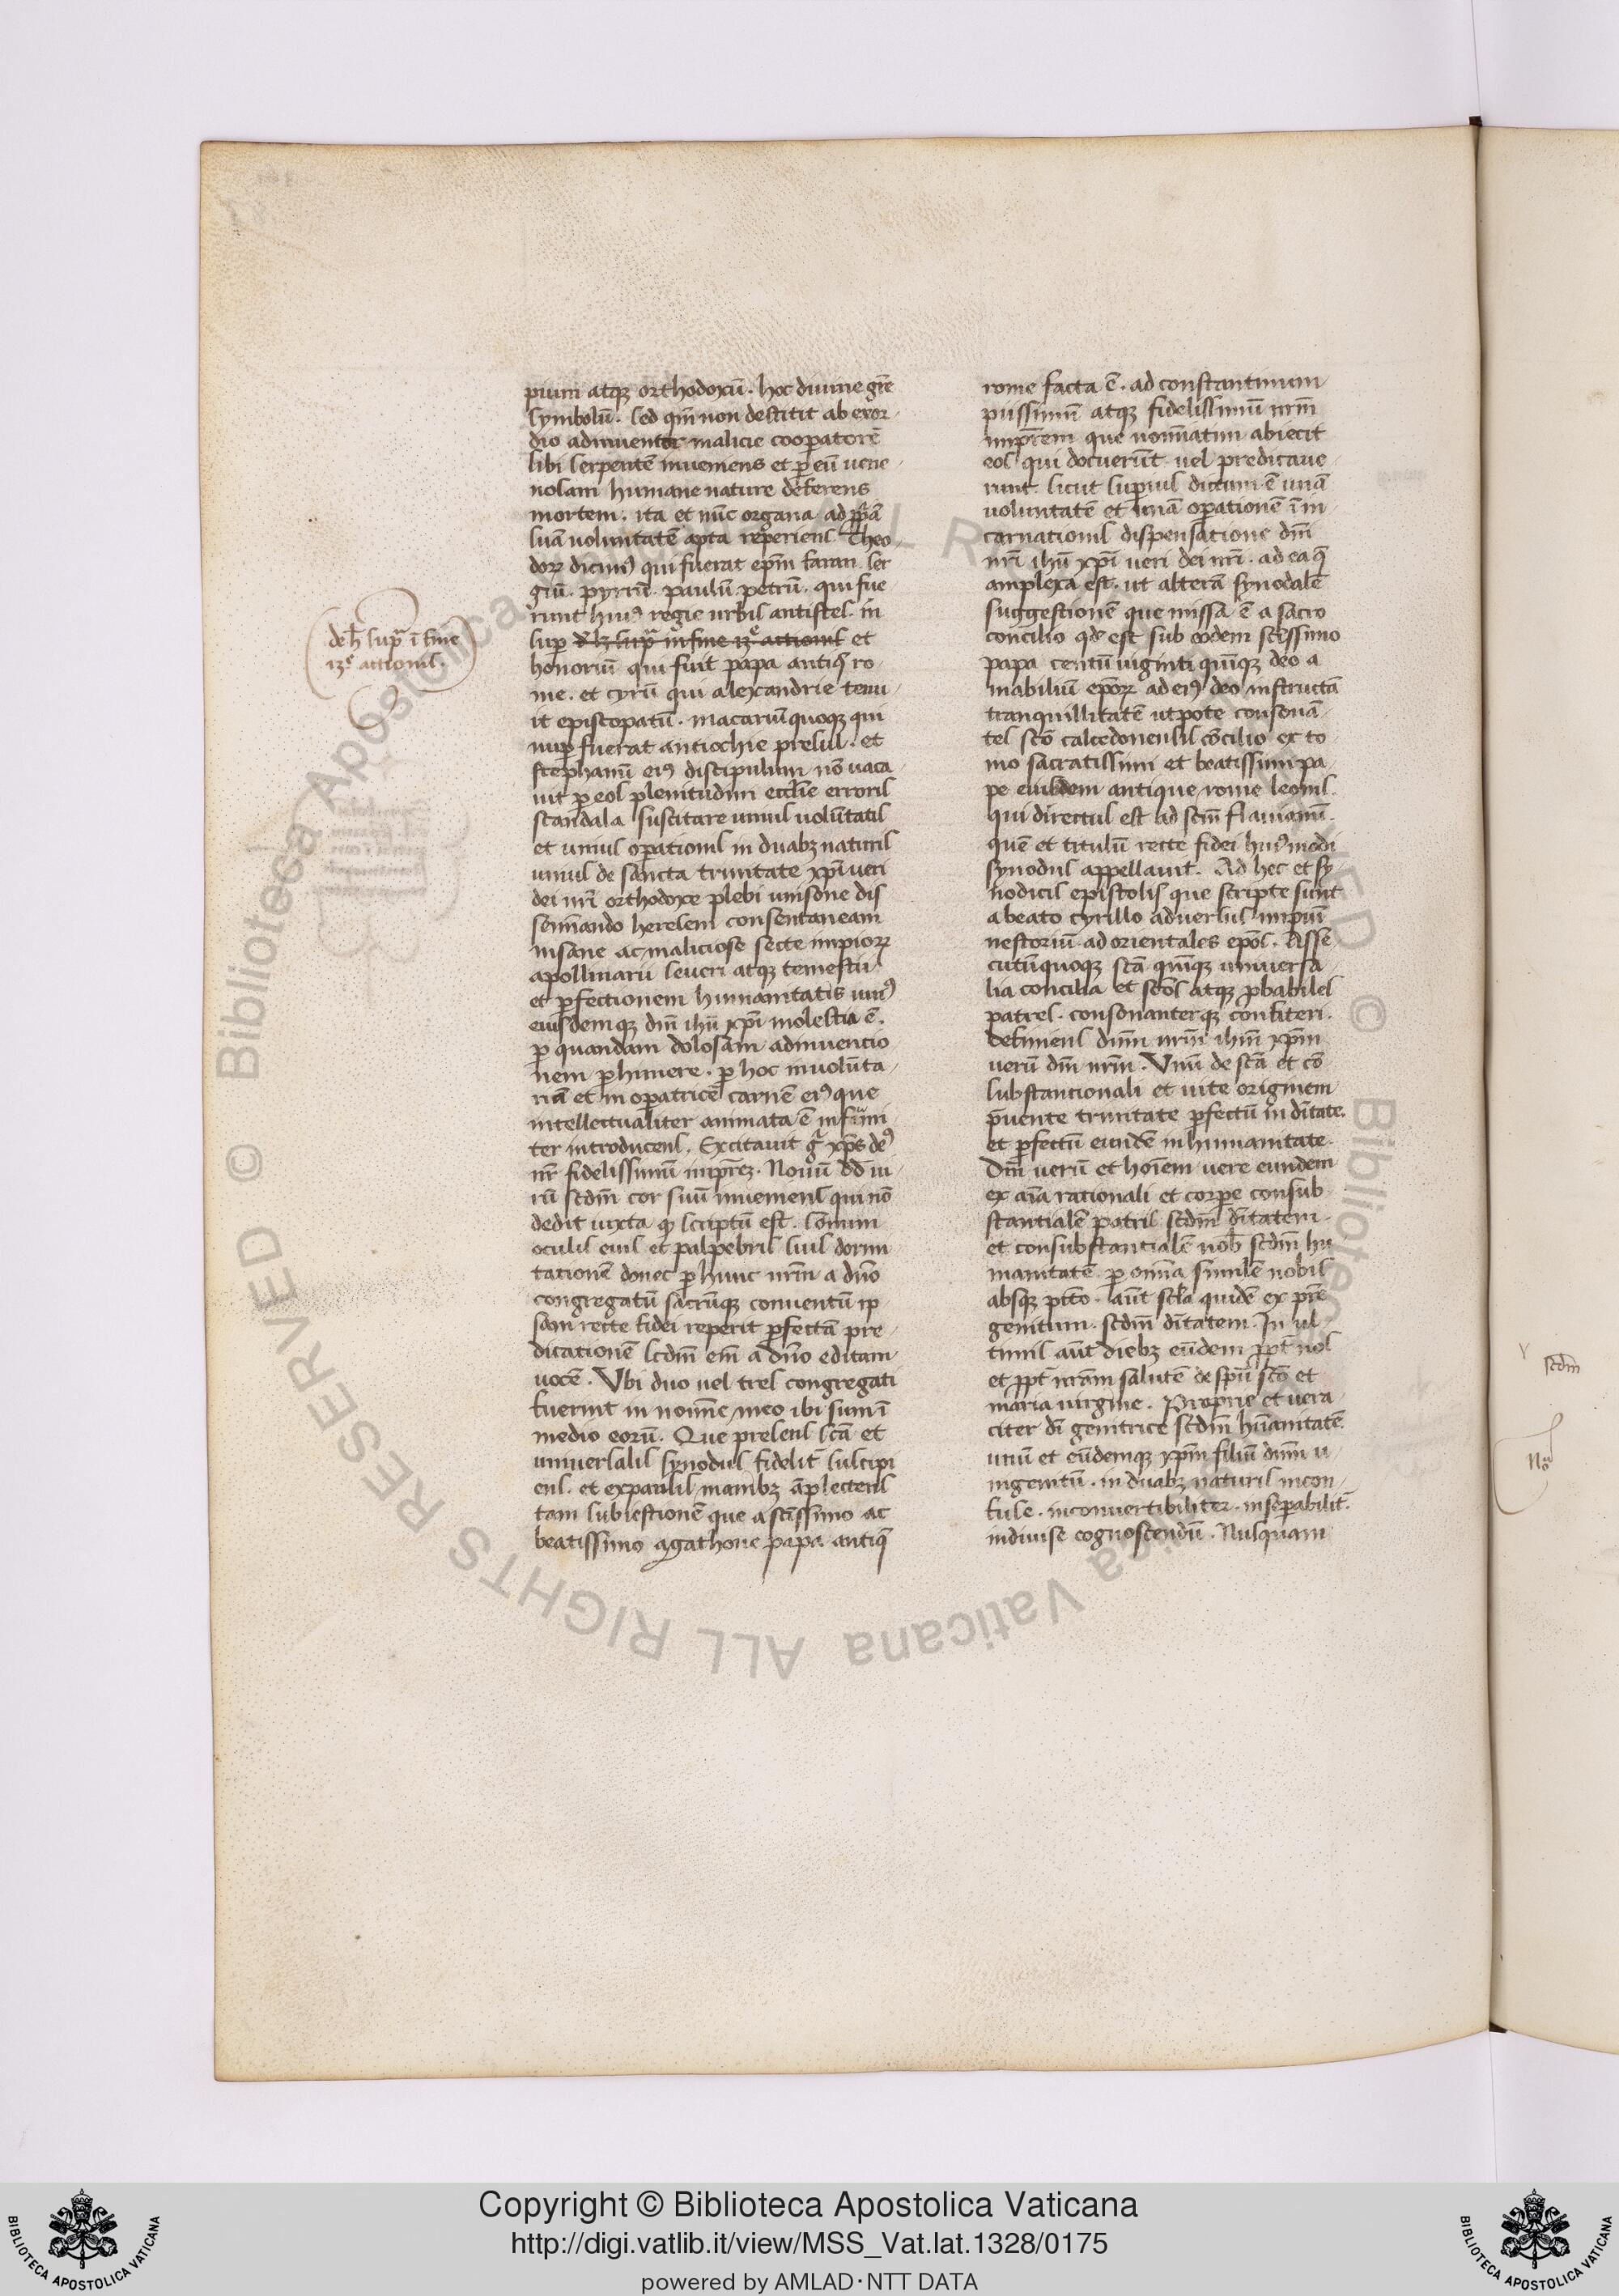 pium atqꝫ orthodoxū. hoc diuine gr̄e
symbolū. sed qm̄ non destitit ab exor-
dio adinuentor malicie cooperatorē
sibi serpentē inueniens et ꝑ eū uene-
nosam humane nature deferens
mortem. ita et nūc organa ad ppͥā
suā voluntatē apta reperiens Theo-
dorꝝ dicimꝰ qui fuerat ep̄m faran. ser
giū. pyrrū. paulū petrū. qui fue
runt huiꝰ regie urbis antistes. in
suꝑ et
honoriū qui fuit papa antiq̄ ro-
me. et cyrū qui alexandrie tenu-
it episcopatū. macariū quoqꝫ qui
nuꝑ fuerat antiochie presul. et
stephanū eiꝰ discipulum nō uaca-
uit ꝑ eos plenitudini eccl̄ie erroris
scandala suscitare unius uolūtatis
et unius oꝑationis in duabꝫ naturis
unius de sancta trinitate xp̄i ueri
dei nr̄i orthodoxe plebi unisone dis
semīando heresem consentaneam
insane ac maliciose secte impiorꝝ
apollinarii seueri atqꝫ temestii
et ꝑfectionem humanitatis uniꝰ
eiusdemqꝫ dn̄i ihū xp̄i molestia ē.
ꝑ quandam dolosam adinuencio
nem ꝑhimere. ꝑ hoc inuolūta-
riā et in oꝑatricē carnē eiꝰ que
intellectualiter animata ē infami
ter introducens. Excitauit gͥ xp̄s deꝰ
nr̄ fidelissimū impr̄eꝫ. Nouū dd̄ ui-
rū scdm̄ cor suū inueniens qui nō
dedit iuxta qͩ scriptū est. somnum
oculis euis et palpebris suis dormi
tationē donec ꝑ hunc nr̄m a dn̄o
congregatū sacrūqꝫ conuentū ip-
sam recte fidei reperit ꝑfectā pre-
dicationē scdm̄ em̄ a dn̄o editam
uocē. Vbi duo uel tres congregati
fuerint in nomīe meo ibi sum ī
medio eorū. Que presens sc̄a et
uniuersalis synodus fidelit̄ suscipi
ens. et expansis manibꝫ āplectens
tam subiestionē que a sc̄issimo ac
beatissimo agathone papa antiq̄
deh̄ supͣ ī fine
13ͤ actionis.
rome facta ē. ad constantinum
piissimū atqꝫ fidelissimū nr̄m
impr̄em que nomīatim abiecit
eos qui docuerūt uel predicaue-
runt. sicut superius dictum ē unā
voluntatē et unā oꝑationē ī in
carnationis dispensatione dn̄i
nr̄i ihū xp̄i ueri dei nr̄i. ad ea q̄
amplexa est. ut alterā synodalē
suggestionē que missa ē a sacro
concilio qde est sub eodem sc̄issimo
papa centū uiginti quīqꝫ deo a
mabiliū ep̄orꝝ ad eiꝰ deo instructā
tranquillitatē utpote consonā-
tes sc̄o calcedonensis cōcilio ex to-
mo sacratissimi et beatissimi pa-
pe eiusdem antique rome leonis.
Qui directus est ad sc̄m flauianū.
quē et titulū recte fidei huiꝰmodi
synodus appellauit. Ad hec et sy-
nodicis epistolis que scripte sunt
a beato cyrillo aduersus impiū
nestoriū ad orientales ep̄os. Asse-
cutū quoqꝫ sc̄a quīqꝫ uniuersa-
lia concilia et sc̄os atqꝫ ꝓbabiles
patres. consonanterqꝫ confiteri.
definiens dnm̄ nr̄m ihm̄ xp̄m
uerū dm̄ nr̄m. Vnū de sc̄a et cō-
substancionali et uite originem
p̄uente trinitate ꝑfectū in dītate.
et ꝑfectū eundē in humanitate.
Dm̄ uerū et hoīem uere eundem
ex aīa rationali et corꝑe consub-
stantialē patris scdm̄ dītatem.
et consubstantialē nob̄ scdm̄ hu
manitatē. ꝑ omīa similē nobis
absqꝫ pc̄to. ān̄t scl̄a quidē ex pr̄e
genitum. scdm̄ dītatem. In ul-
timis aūt diebꝫ eūdem ꝓpt̄ nos
et ꝓpt̄ nr̄am salutē de spū sc̄o et
maria uirgine. Proprie et uera-
citer dī genitrice scdm̄ hūanitatē.
unū et eūdemqꝫ xp̄m filiū dnm̄ u-
nigenitū. in duabꝫ naturis incon-
fuse. inconuertibiliter. inseꝑabilit̄.
indiuise cognoscendū. Nusquam
scdm̄
Noͣ
Copyright © Biblioteca Apostolica Vaticana
http://digi.vatlib.it/view/MSS_Vat.lat.1328/0175
powered by AMLAD·NTT DATA
BIBLIOTECA APOSTOLICA VATICANA
BIBLIOTECA APOSTOLICA VATICANA
© Biblioteca Apostolica Vaticana ALL RIGHTS RESERVED